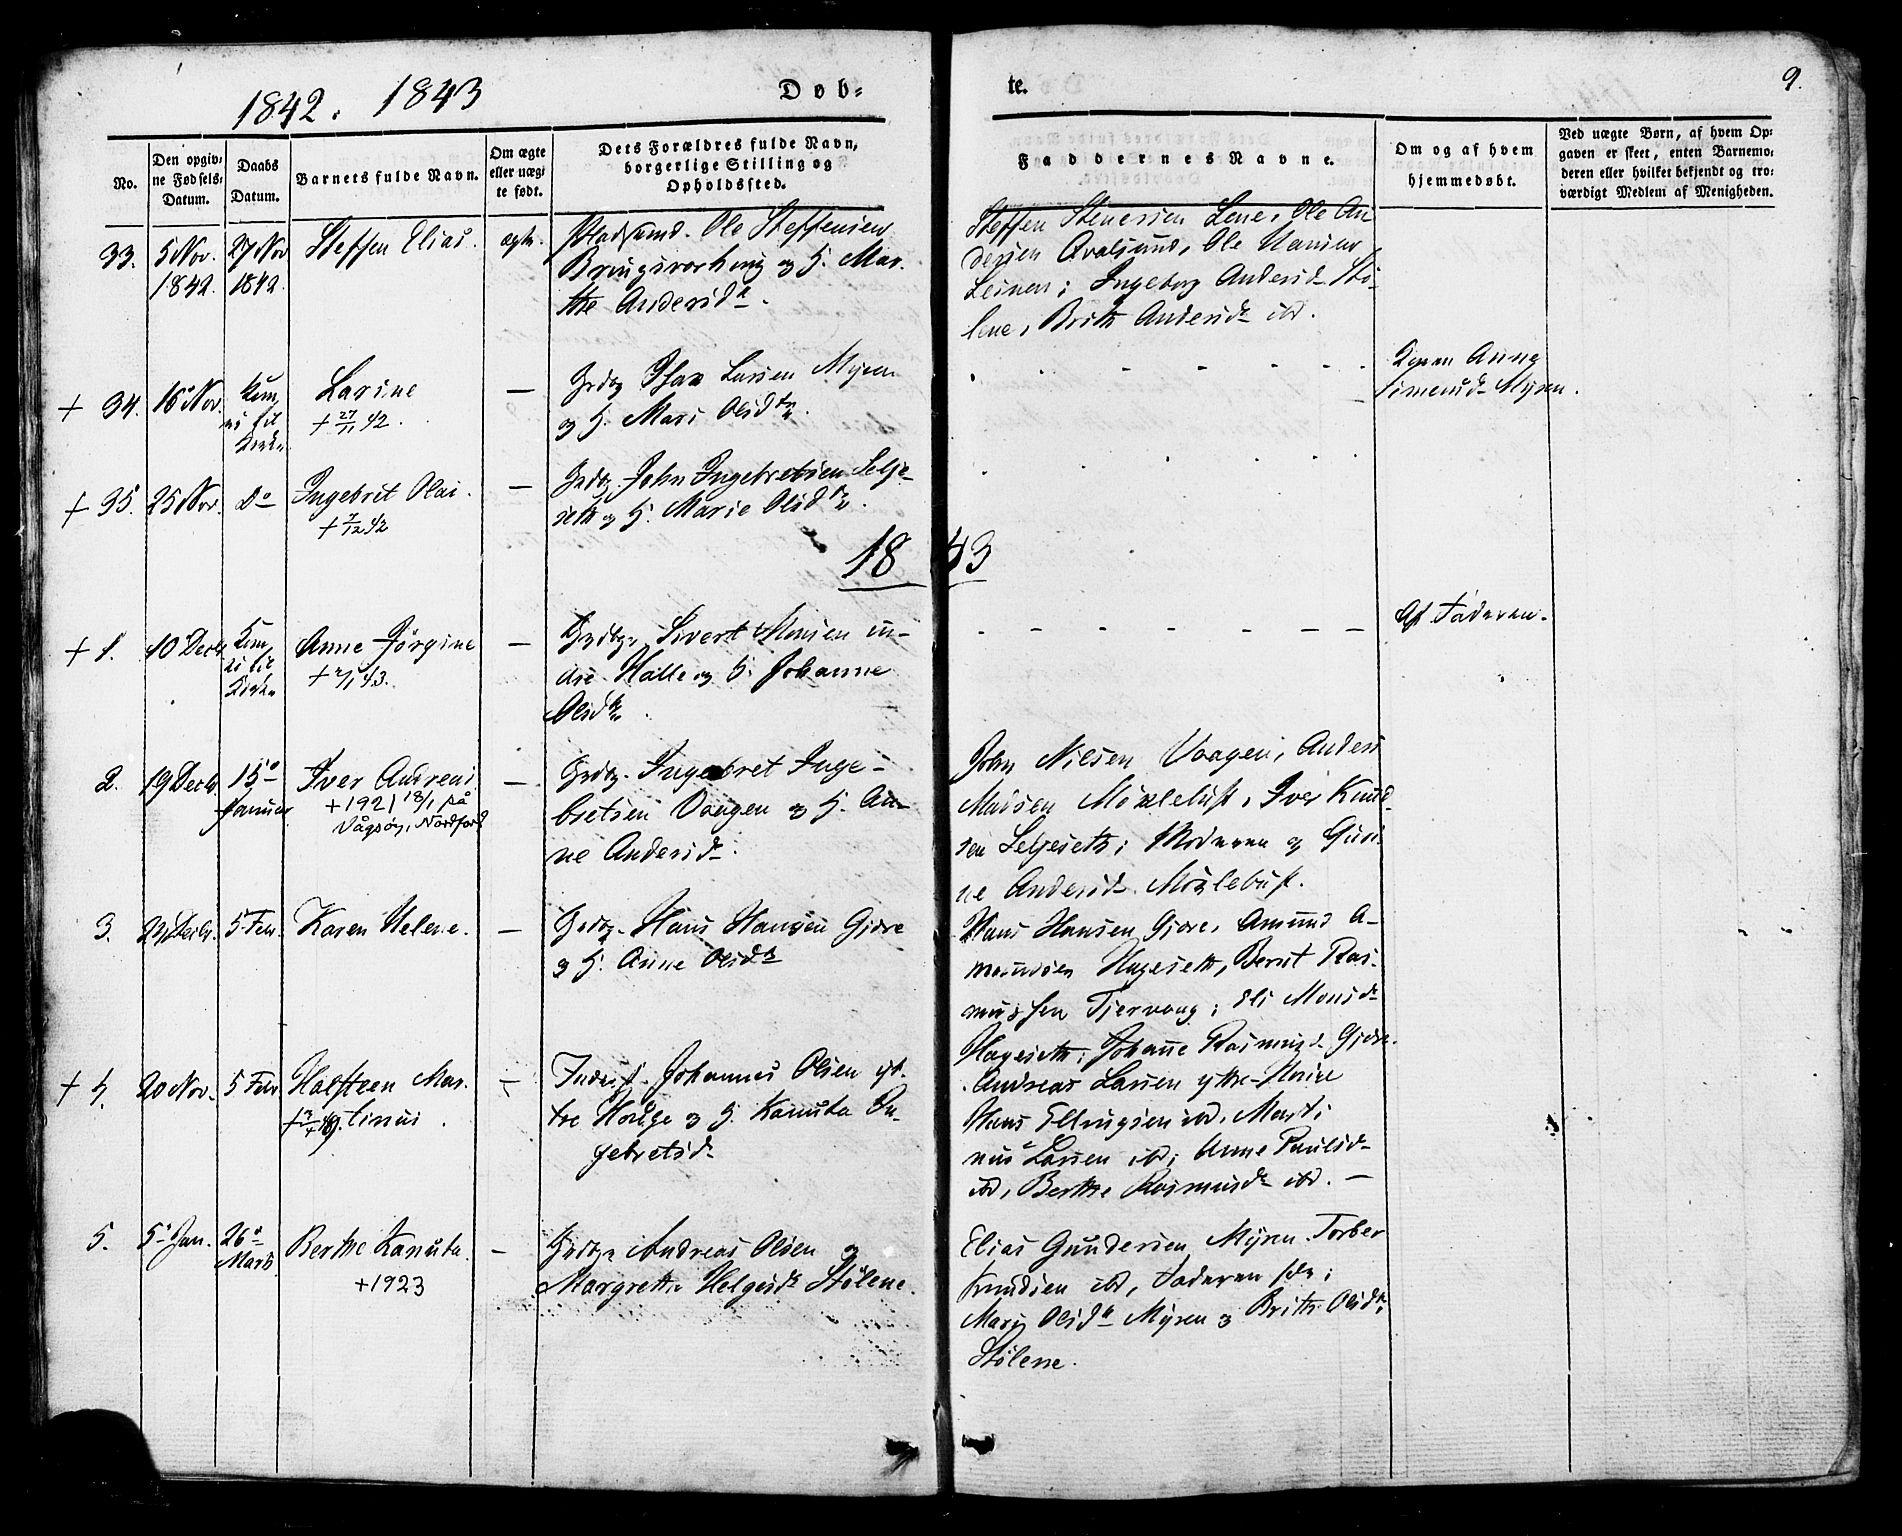 1842. 1843
Døb=
te.
9.
No.
Den opgiv=
ne Fødsels=
Datum.
Daabs
Datum.
Barnets fulde Navn.
Om ægte
eller uægte
te født.
Dets Forældres fulde Navn,
borgerlige Stilling og
Opholdssted.
Faddernes Navne.
Om og af hvem
hjemmedøbt.
Ved uægte Børn, af hvem Op=
gaven er skeet, enten Barnemo=
deren eller hvilket bekjendt og tro=
værdigt Medlem af Menigheden.
33.
5 Nov.
1842.
27 Nov
1842.
Steffen Elias.
ægte.
Pladsmd. Ole Steffensen
og H. Mar-
the Andersdr.
Steffen Stenersen Lene, Ole An
dersen Qvalsund, Ole Hansen
Leinen; Ingeborg Andersd. Stø-
lene, Brithe Andersd ibd.
+ 34.
16 Nov.
Kom
ei til
Kirke
Larine
+ 27/11 42.
—
Grdbr Isax Larsen Myren
og H. Mari Olsdtr.
Konen Anne
Simensd. Myren.
+ 35.
25 Nov.
Do
Ingebrit Olai.
+ 7/12 42
—
Grdbr. John Ingebretsen Selje-
seth og H. Marie Olsdtr.
1843
+ 1.
10 Decbr
Kom
ei til
Kirke
Anne Jørgine
+ 2/1 43.
—
Grdbr. Sivert Monsen in-
dre Halle og H. Johanne
Olsdtr.
Af Faderen.
2.
19 Decbr.
15de
Januar
Iver Andreas
+ 1921 18/1 på
Vågsøy, Nordfjord
—
Grdbr. Ingebret Inge-
bretsen Vaagen og H. An-
ne Andersd.
John Nilsen Vaagen, Anders
Madsen Moxlebust, Iver Knud
sen Seljeseth; Moderen og Guri-
ne Andersd. Moxlebust.
3.
24 Decbr.
5 Febr.
Karen Helene.
—
Grdbr. Hans Hansen Gjøre
og H. Anne Olsdtr
Hans Hansen Gjøre, Amund A-
mundsen Hageseth, Bernt Ras-
mussen Tjervaag; Eli Monsdr
Hageseth; Johanne Rasmusd. Gjøre.
+ 4.
20 Nov.
5 Febr
Halsteen Mar-
tinus.
—
Inderst. Johannes Olsen yt-
tre Houge og H. Kanuta In-
gebretsd.
Andreas Larsen yttre-Houge
Hans Ellingsen ibd, Marti-
nus Larsen ibd; Anne Paulsd.
ibd, Berthe Rasmusdr ibd. —
5.
5 Jan.
26de
Marts.
Berthe Kanuta.
+ 1923
—
Grdbr Andreas Olsen og
Margrethe Helgesdr Stølene.
Elias Gundersen Myren. Torber
Knudsen ibd, Faderen selv;
Mari Olsdtr Myren og Brithe Olsdtr,
Stølene.